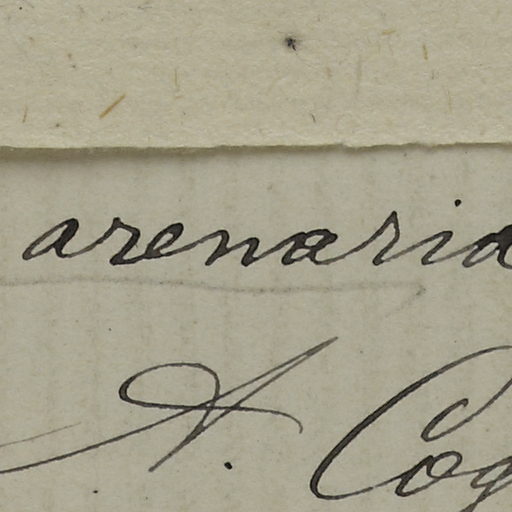 arenaria
A. Cog